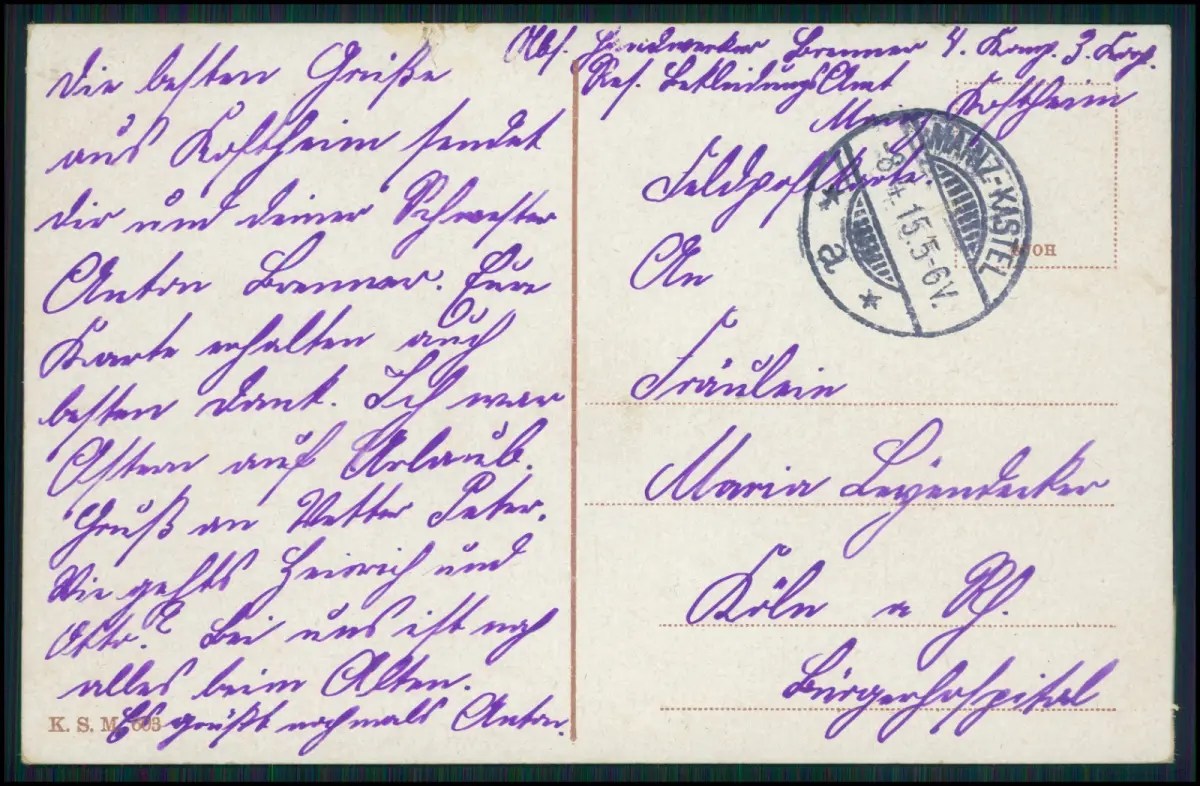 Die besten Grüße
aus Kostheim sendet
dir und deiner Schwester
Anton Brenner. Eure
Karte erhalten auch
besten Dank. Ich war
Ostern auf Urlaub.
Gruß an Vetter Peter.
Wie gehts Heinrich und
Otto? Bei uns ist noch
alles beim Alten.
Es grüßt nochmals Anton.
K. S. M. 603
Abs. Handwerker Brenner 4. Komp. 3. Korp.
Res. BekleidungsAmt
Mainz Kostheim
Feldpostkarte.
MAINZ-KASTEL
-8.4.15.5-6V.
* a *
An
Fräulein
Maria Leyendecker
Köln a Rh.
Bürgerhospital